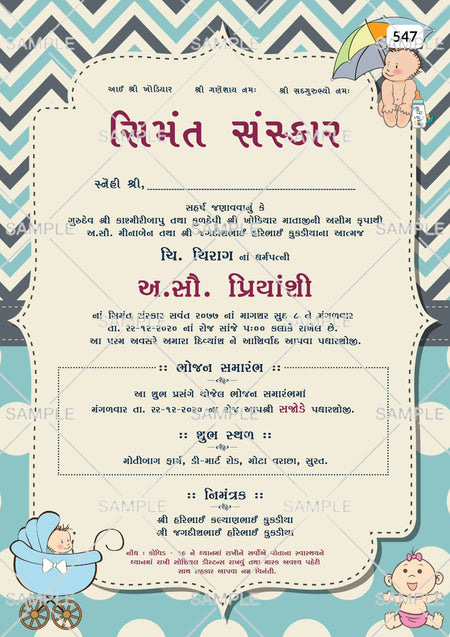 547
આઈ શ્રી ખોડિયાર શ્રી ગણેશાય નમઃ શ્રી સદગુરુભ્યો નમઃ
સિમંત સંસ્કાર
સ્નેહી શ્રી,
સહર્ષ જણાવવાનું કે
ગુરુદેવ શ્રી કાશ્મીરીબાપુ તથા કુળદેવી શ્રી ખોડિયાર માતાજીની અસીમ કૃપાથી
અ.સૌ. મીનાબેન તથા શ્રી જગદીશભાઈ હરિભાઈ કુકડીયાના આત્મજ
ચિ. ચિરાગ નાં ધર્મપત્ની
અ.સૌ. પ્રિયાંશી
નાં સિમંત સંસ્કાર સવંત ૨૦૭૭ નાં માગશર સુદ ૮ ને મંગળવાર
તા. ૨૨-૧૨-૨૦૨૦ નાં રોજ સાંજે ૫:૦૦ કલાકે રાખેલ છે.
આ પરમ અવસરે અમારા દિવ્યાંશ ને આશિર્વાદ આપવા પધારશોજી.
:: ભોજન સમારંભ ::
આ શુભ પ્રસંગે યોજેલ ભોજન સમારંભમાં
મંગળવાર તા. ૨૨-૧૨-૨૦૨૦ ના રોજ આપશ્રી સજોડે પધારશોજી.
:: શુભ સ્થળ ::
મોતીબાગ ફાર્મ, ડી-માર્ટ રોડ, મોટા વરાછા, સુરત.
:: નિમંત્રક ::
શ્રી હરિભાઈ કલ્યાણભાઈ કુકડીયા
શ્રી જગદીશભાઈ હરિભાઈ કુકડીયા
નોંધ : કોવિડ - ૧૯ ને ધ્યાનમાં રાખીને સર્વેએ પોતાના સ્વાસ્થ્યને
ધ્યાનમાં રાખી સોશિયલ ડીસ્ટન્સ રાખવું તથા માસ્ક અવશ્ય પહેરી
સાથ સહકાર આપવા નમ્ર વિનંતી.